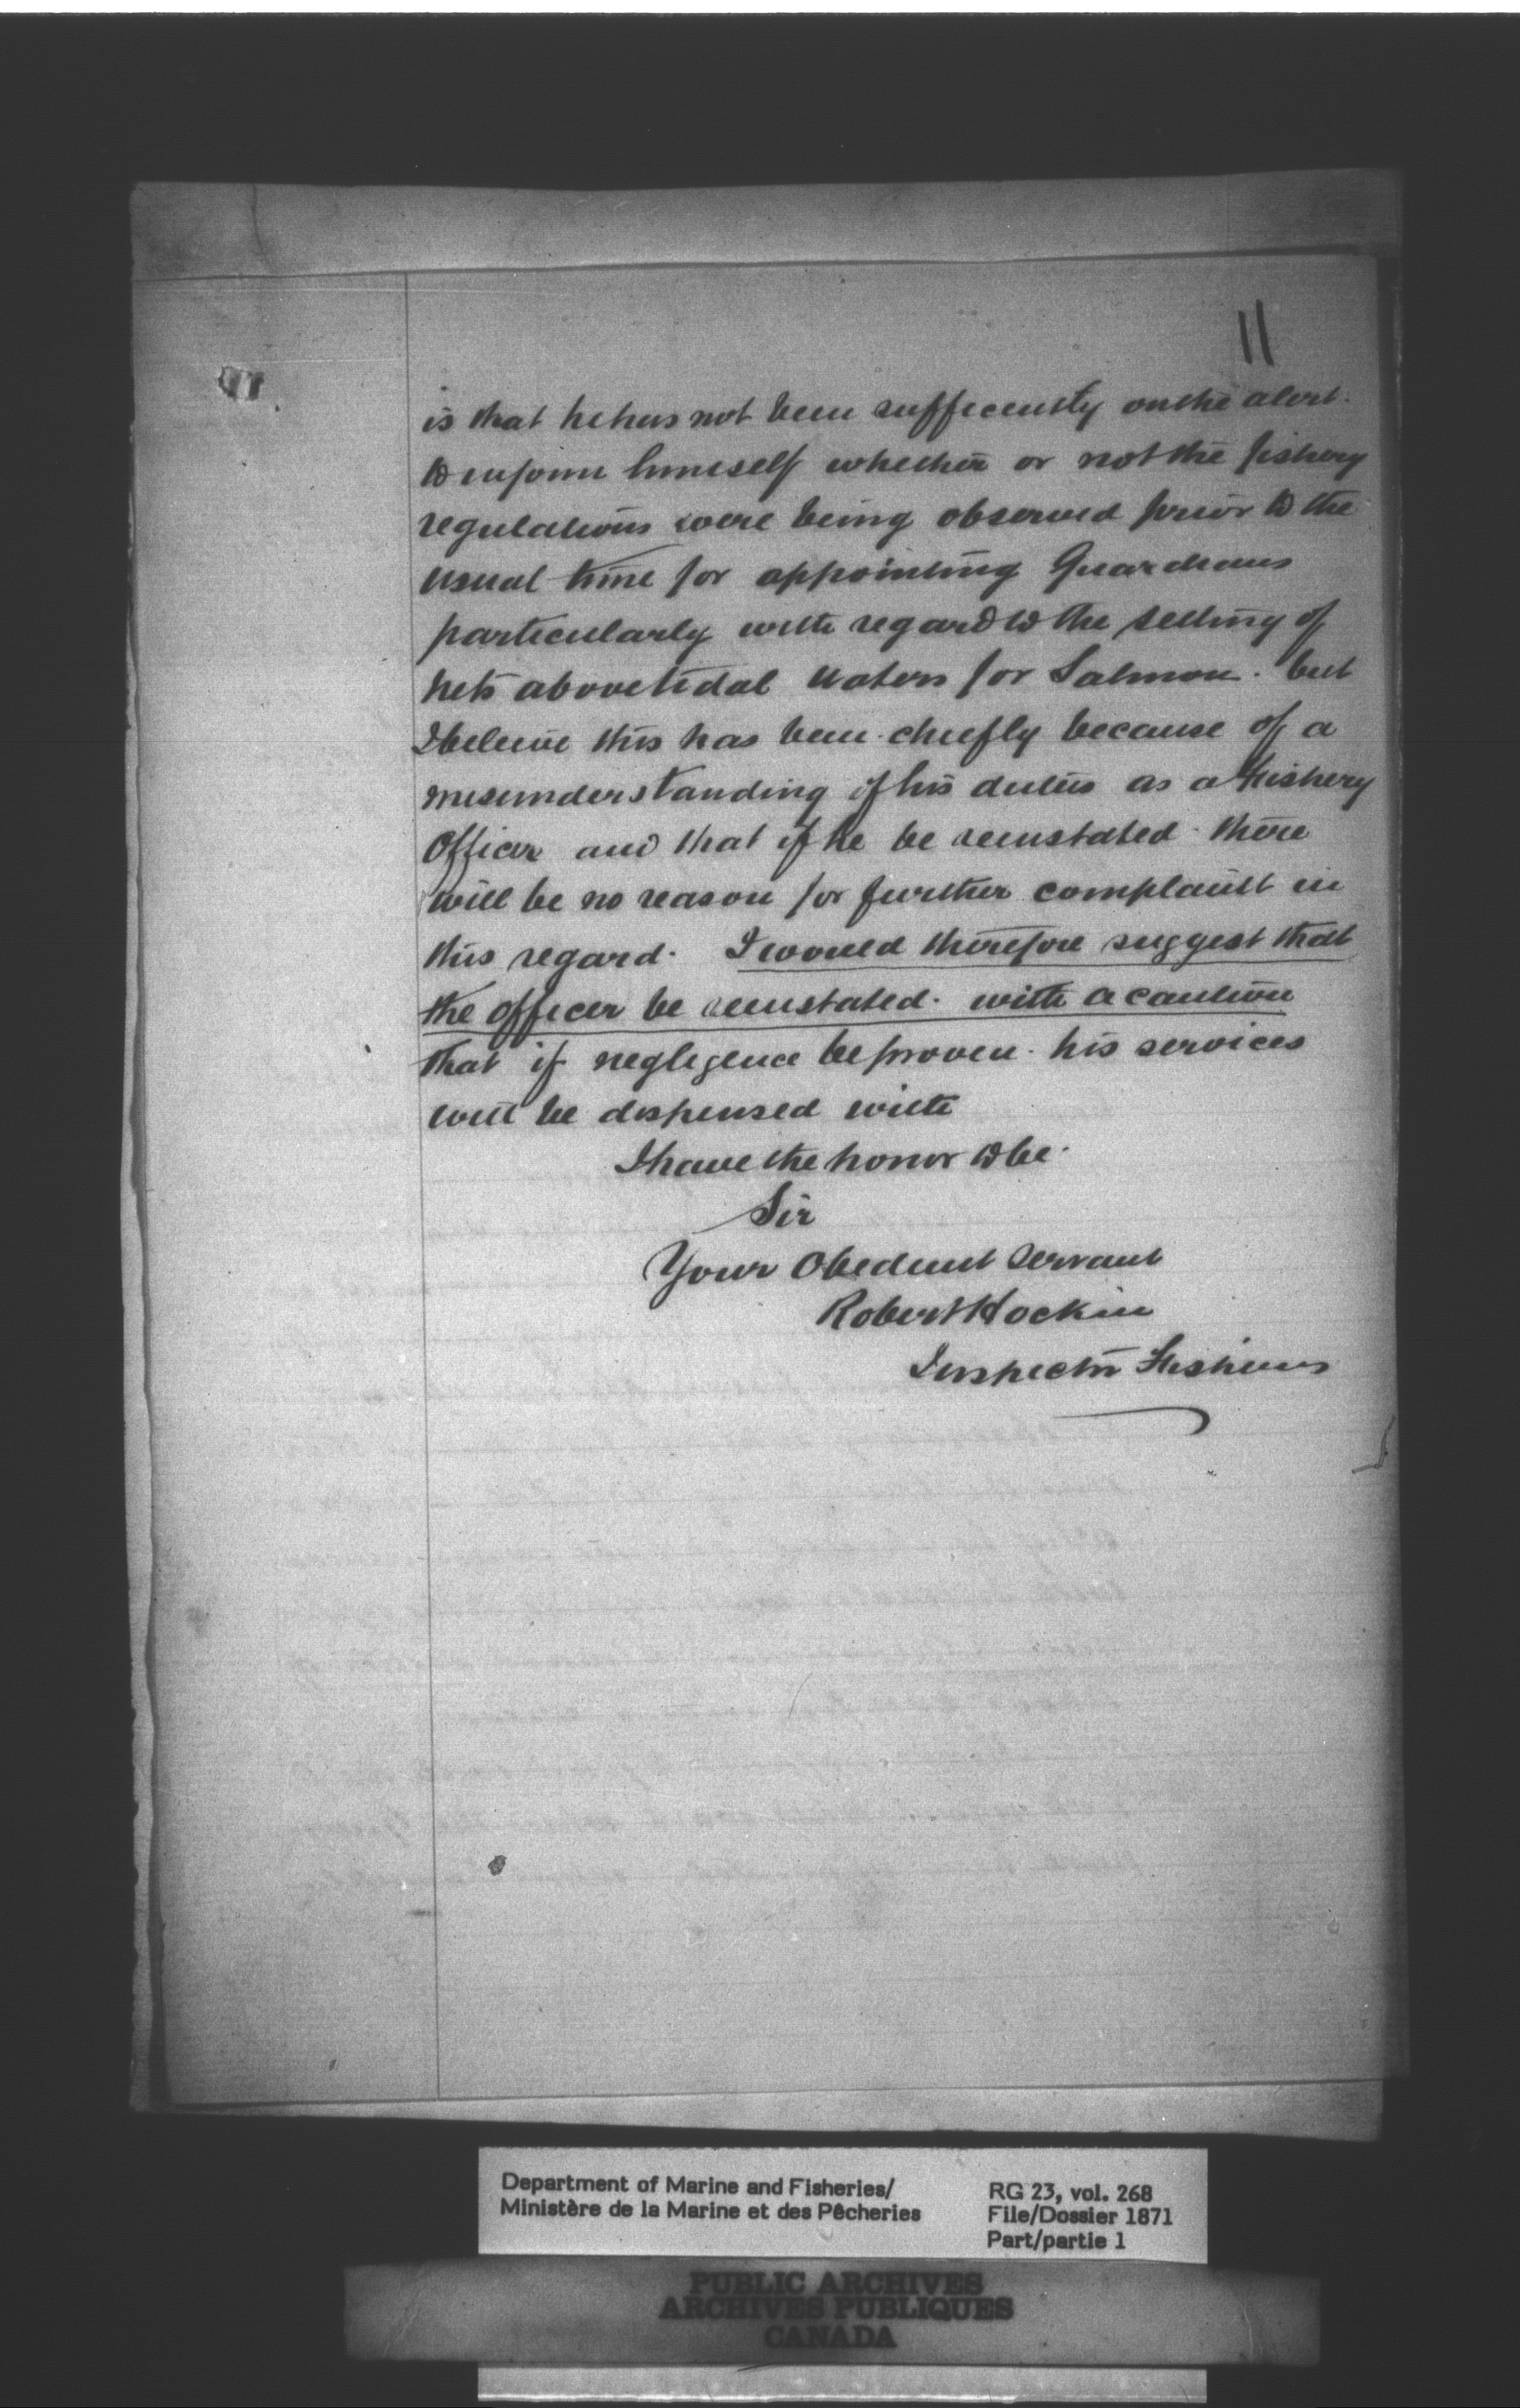 11
is that he has not been sufficiently on the alert.
to inform himself whether or not the fishery
regulations were being observed prior to the
usual time for appointing Guardians
particularly with regard to the setting of
nets above tidal waters for Salmon. but
I believe this has been chiefly because of a
misunderstanding of his duties as a Fishery
Officer and that if he be reinstated there
will be no reason for further complaint in
this regard. I would therefore suggest that
the officer be reinstated. with a caution
that if negligence be proven. his services
will be dispensed with
I have the honor to be.
Sir
Your Obedient Servant
Robert Hockin
Inspector Fisheries
Department of Marine and Fisheries/
Ministère de la Marine et des Pêcheries
RG 23, vol. 268
File/Dossier 1871
Part/partie 1
PUBLIC ARCHIVES
ARCHIVES PUBLIQUES
CANADA